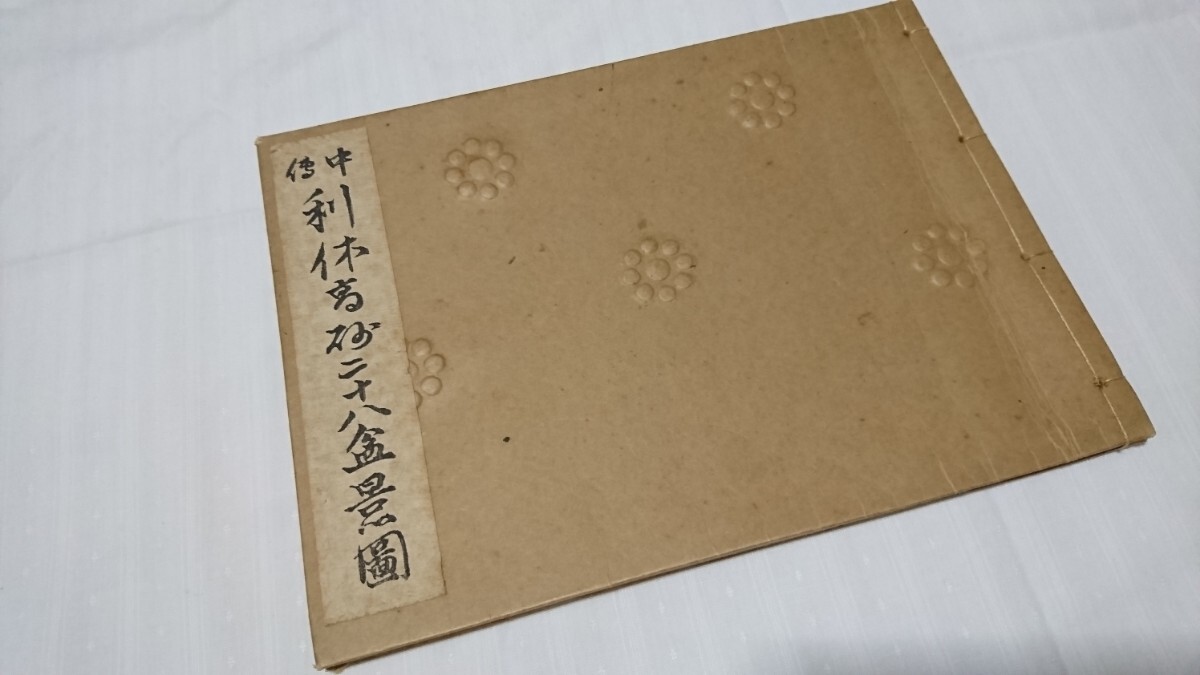 中傳
利休高砂二十八盆景圖